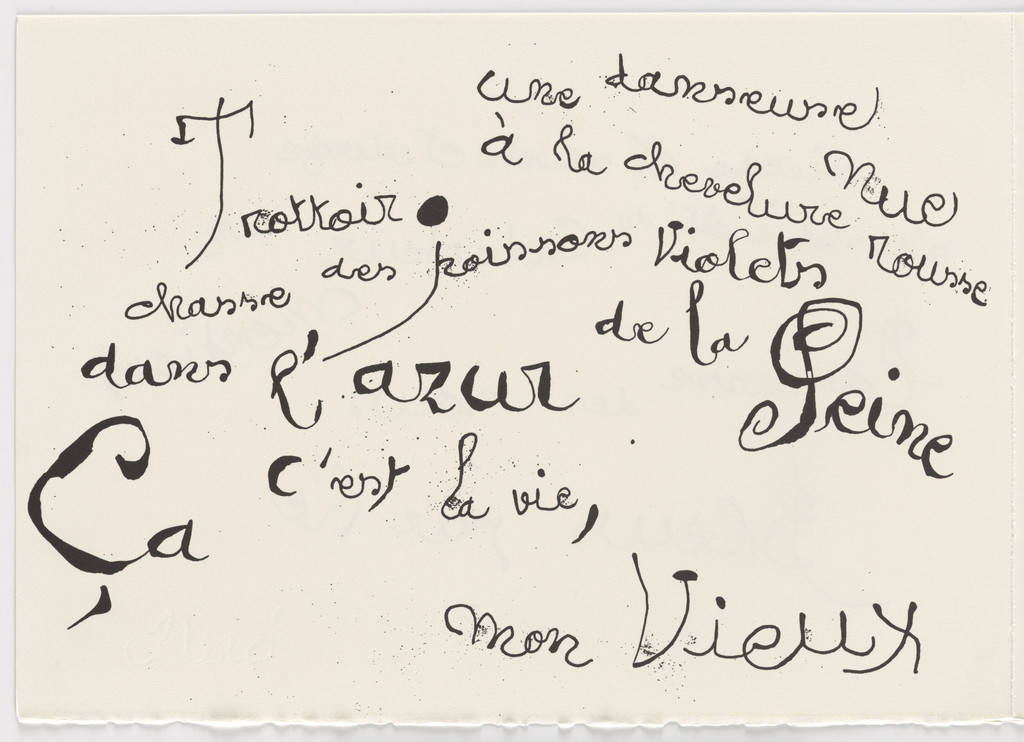 Trottoir
une danseuse
à la chevelure Nue
Rousse
chasse des poissons Violets
dans l'azur de la Seine
Ça c'est la vie,
mon Vieux